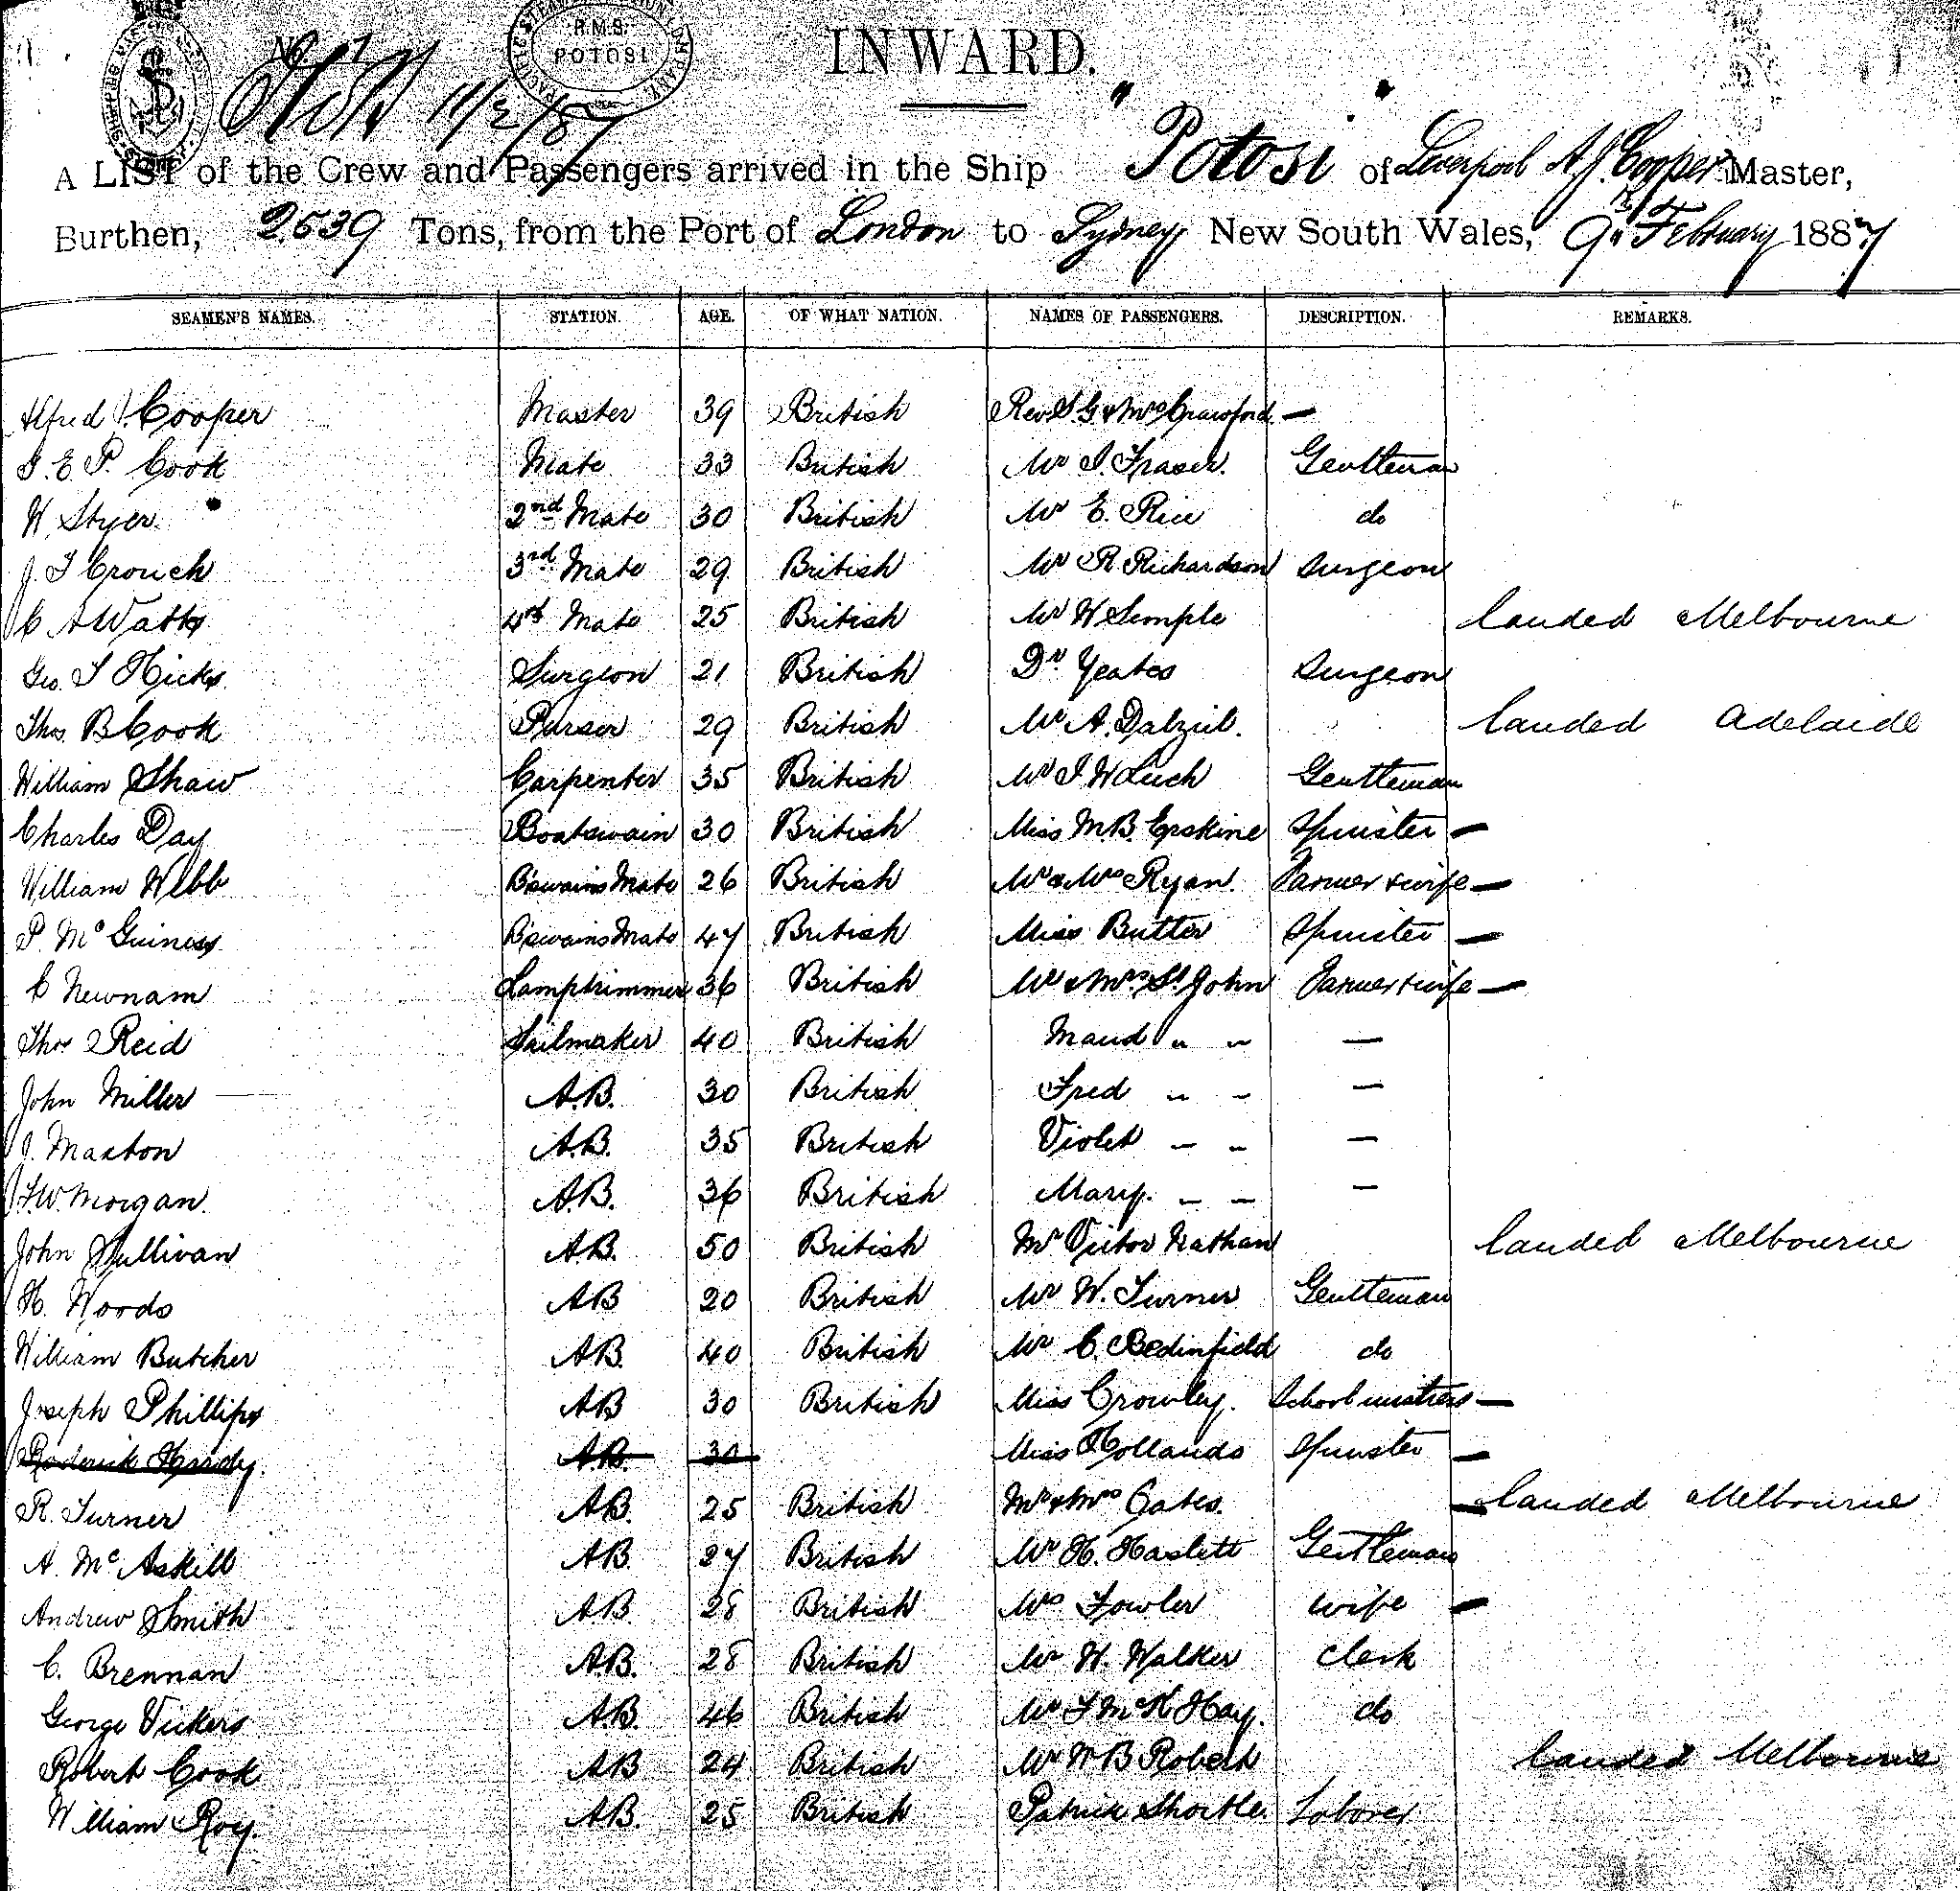 R.M.S.
POTOSI
INWARD.
11/2/87
A LIST of the Crew and Passengers arrived in the Ship "Potosi" of Liverpool A.J. Cooper Master,
Burthen, 2539 Tons, from the Port of London to Sydney New South Wales, 9th February 1887
SEAMEN'S NAMES. STATION. AGE. OF WHAT NATION. NAMES OF PASSENGERS. DESCRIPTION. REMARKS.
Alfred J. Cooper Master 39 British Rev S.G. & Mrs Crawford —
J. E. P. Cook Mate 33 British Mr J. Fraser. Gentleman
W. Styer. 2nd Mate 30 British Mr E. Rice do
J. T Crouch 3rd Mate 29 British Mr R Richardson Surgeon
C A Watts 4th Mate 25 British Mr W Semple landed Melbourne
Geo. S Hicks Surgeon 21 British Dr Yeates Surgeon
Thos. B Cook Purser 29 British Mr A. Dalziel. landed Adelaide
William Shaw Carpenter 35 British Mr J. W Luch Gentleman
Charles Day Boatswain 30 British Miss M.B. Erskine Spinster —
William Webb B'swains Mate 26 British Mr & Mrs Ryan. Farmer & wife —
P. McGuiness B'swains Mate 47 British Miss Butter Spinster —
C Newnam Lamptrimmer 36 British Mr & Mrs St. John Farmer & wife —
Thos Reid Sailmaker 40 British Maud " " —
John Miller A.B. 30 British Fred " " —
J. Maxton A.B. 35 British Violet " " —
J.W. Morgan. A.B. 36 British Mary. " " —
John Sullivan A.B. 50 British Mr Victor Nathan landed Melbourne
H. Woods AB 20 British Mr W. Turner Gentleman
William Butcher AB. 40 British Mr C. Bedinfield do
Joseph Phillips AB 30 British Miss Crowley. School mistress —
Roderick Hardy. A.B. 30 Miss Hollands Spinster —
R. Turner AB. 25 British Mr & Mrs Gates. — landed Melbourne
A. McAskill AB. 27 British Mr H. Haslett Gentleman
Andrew Smith AB 28 British Mrs Fowler wife —
C. Brennan AB. 28 British Mr W. Walker Clerk
George Vickers A.B. 46 British Mr F McK Hay. do
Robert Cook AB 24 British Mr W B Robert landed Melbourne
William Roy. AB. 25 British Patrick Shortle Laborer